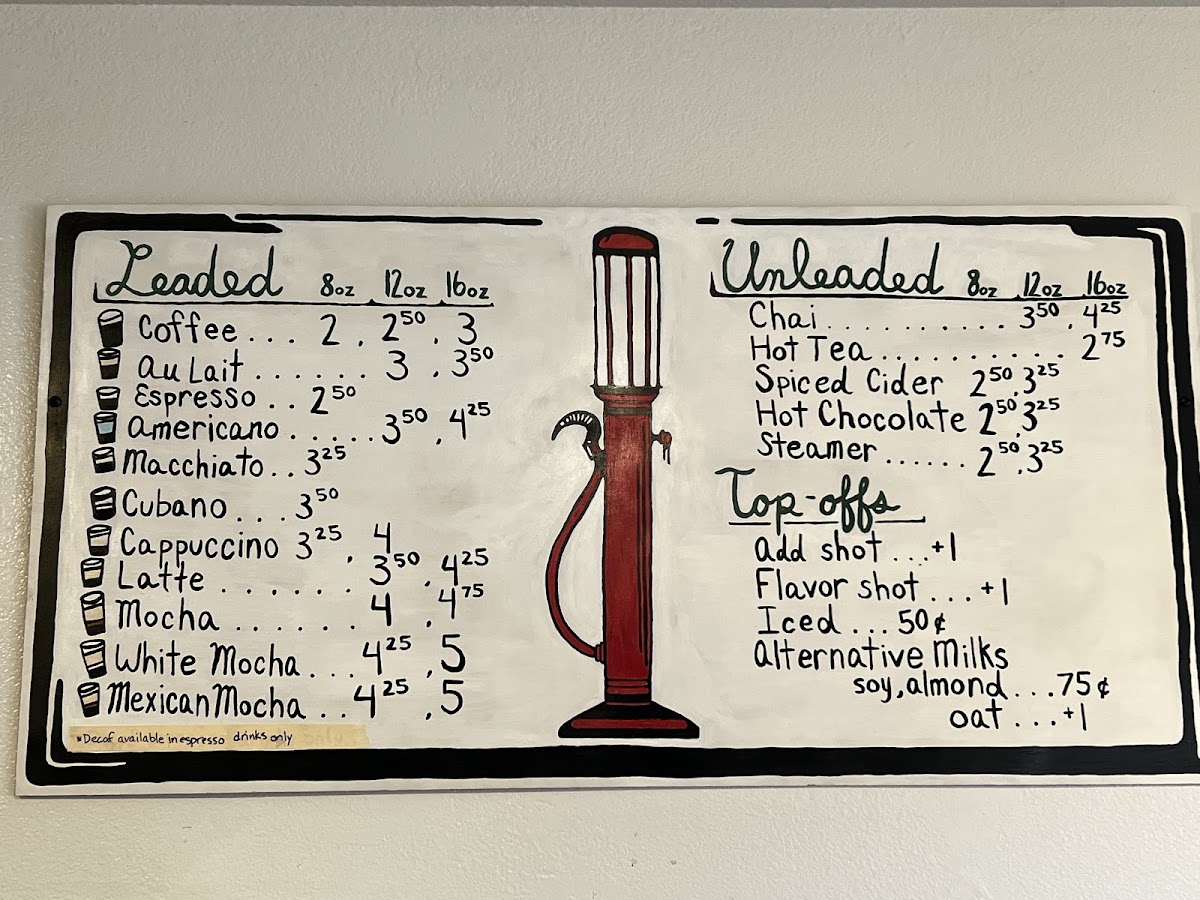 Leaded 8oz 12oz 16oz
Coffee... 2 . 2⁵⁰ . 3
Au Lait....... 3 . 3⁵⁰
Espresso.. 2⁵⁰
Americano......3⁵⁰ . 4²⁵
Macchiato.. 3²⁵
Cubano... 3⁵⁰
Cappuccino 3²⁵ . 4
Latte....... 3⁵⁰ . 4²⁵
Mocha...... 4 . 4⁷⁵
White Mocha... 4²⁵ . 5
Mexican Mocha..4²⁵ . 5
*Decaf available in espresso drinks only
Unleaded 8oz 12oz 16oz
Chai........... 3⁵⁰ . 4²⁵
Hot Tea........... 2⁷⁵
Spiced Cider 2⁵⁰ . 3²⁵
Hot Chocolate 2⁵⁰ . 3²⁵
Steamer...... 2⁵⁰ . 3²⁵
Top-offs
add shot...+1
Flavor shot...+1
Iced...50¢
alternative Milks
soy, almond...75¢
oat...+1